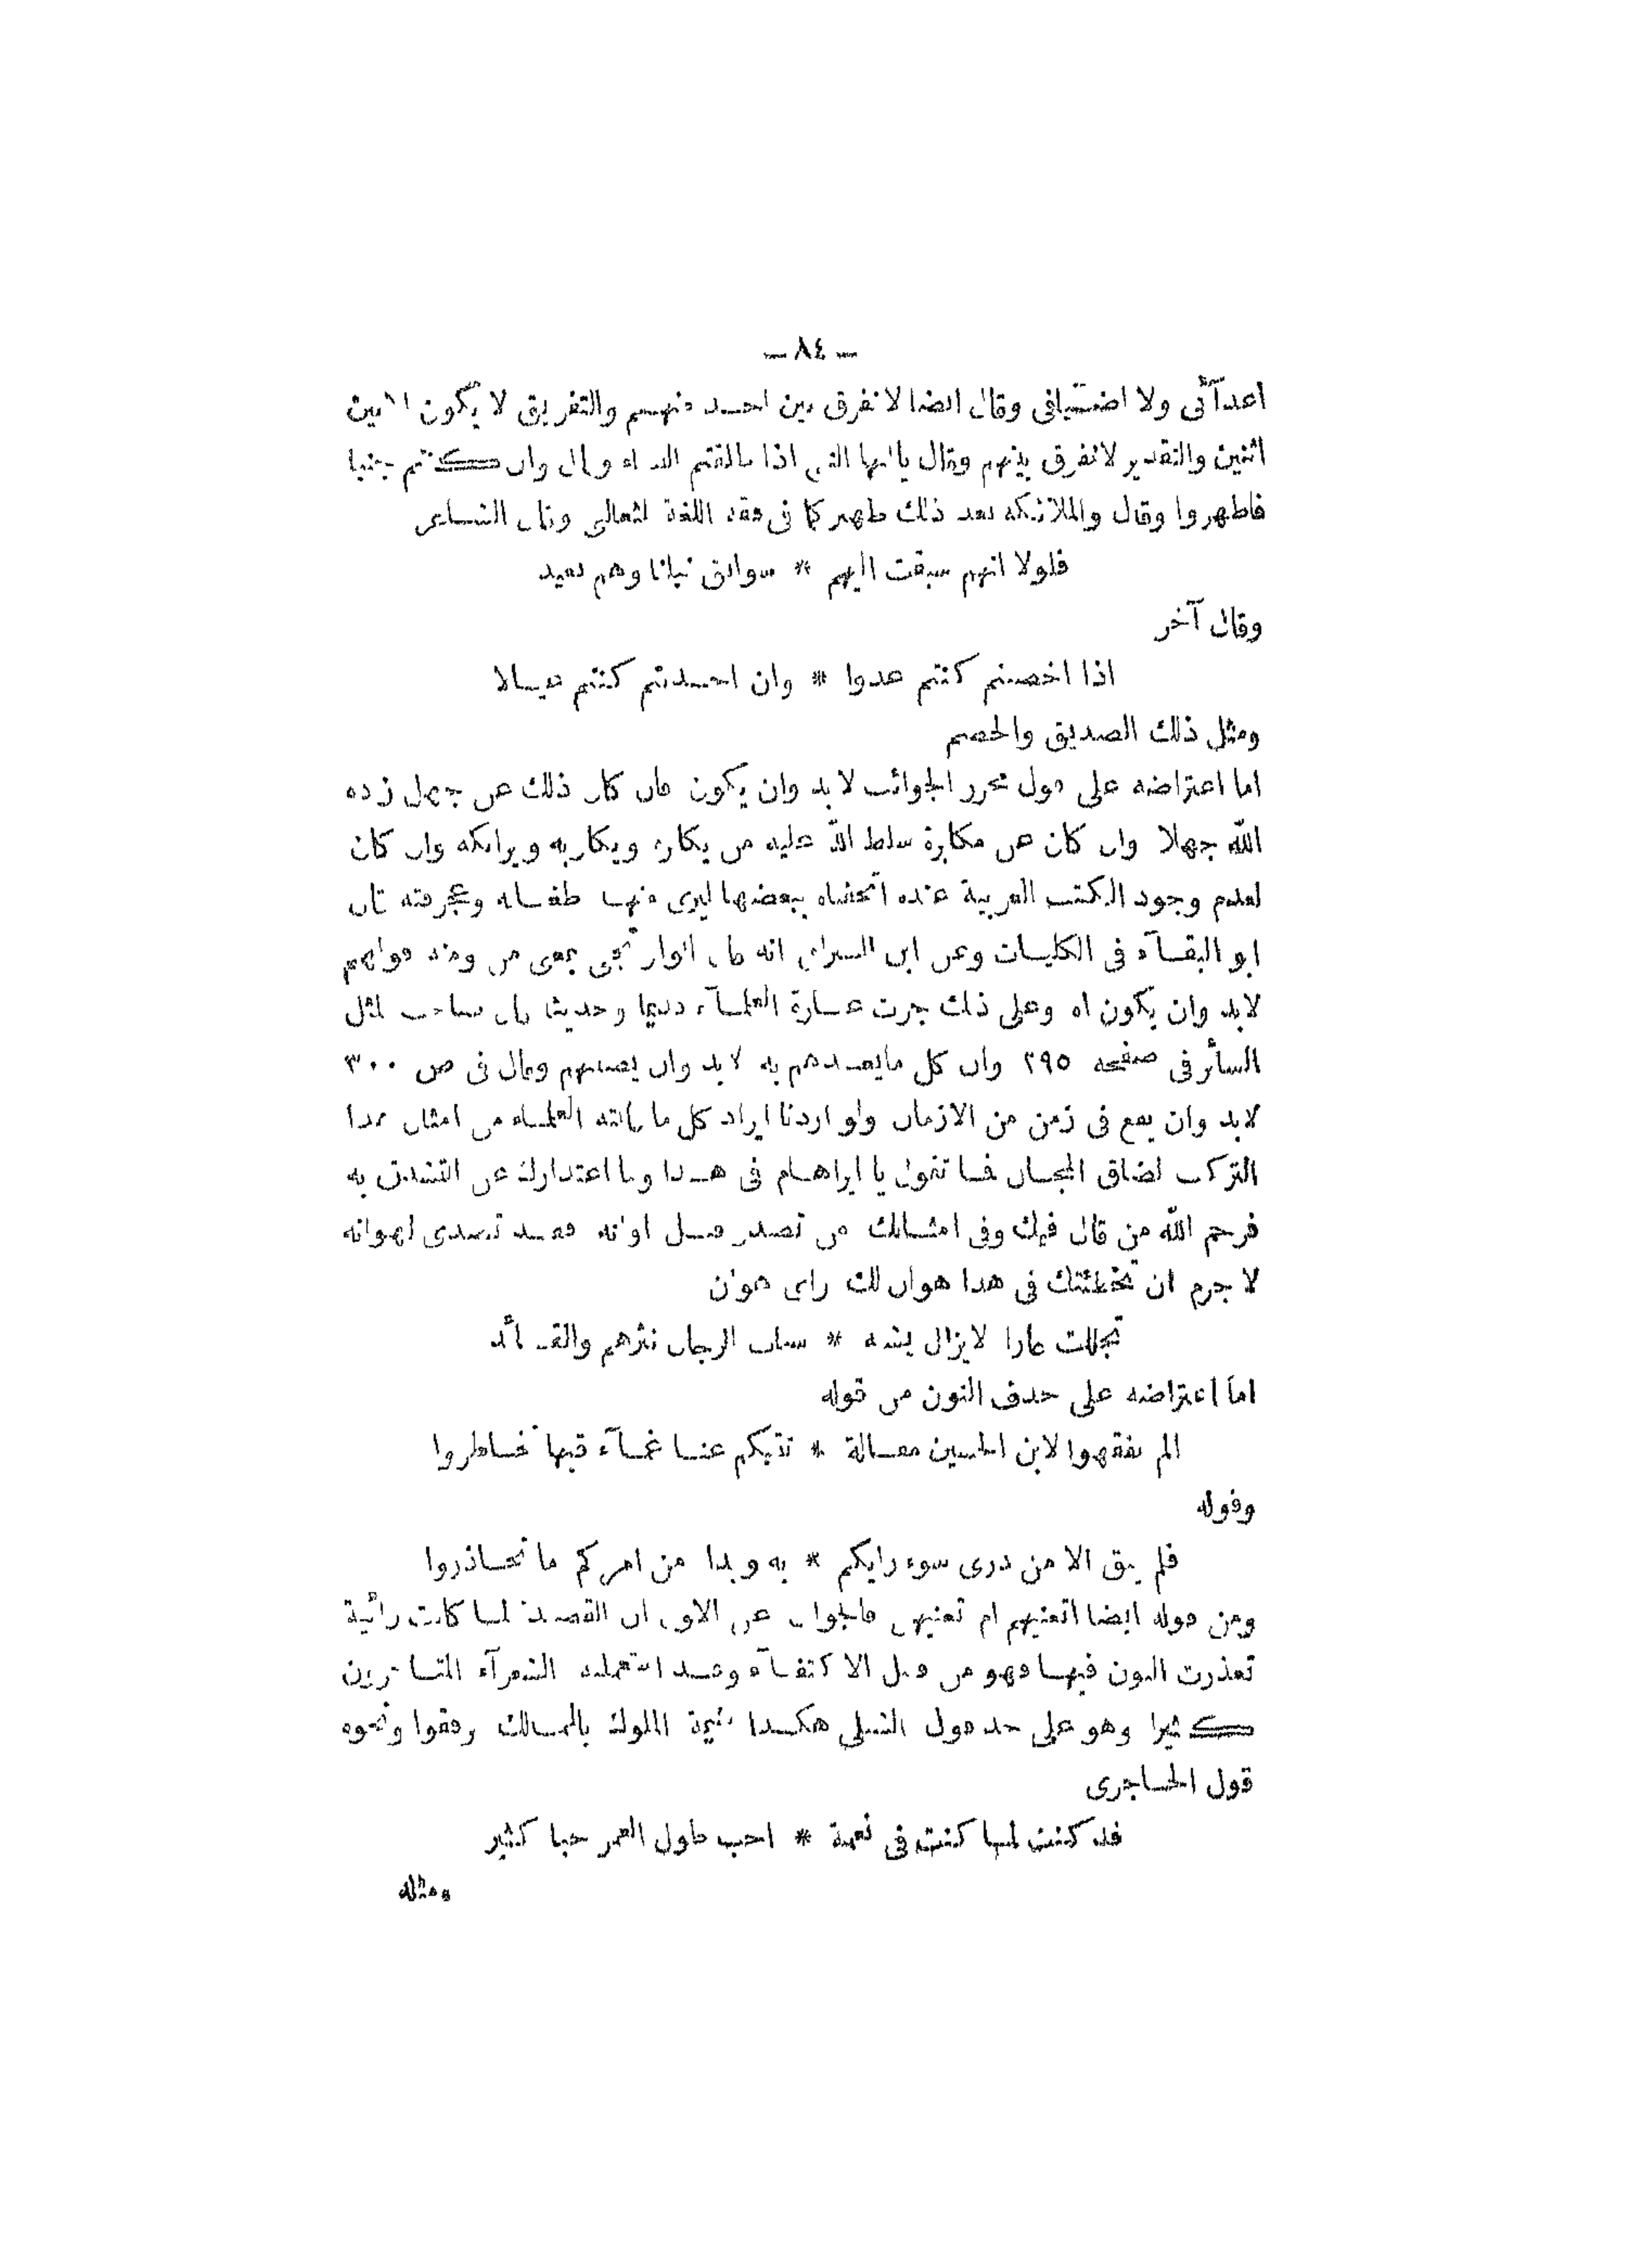 — ٨٤ —
اعدآئى ولا اضيافى وقال ايضا لا نفرق بين احد منهم والتفريق لا يكون الا بين
اثنين والتقدير لا نفرق بينهم وقال يا ايها النبى اذا طلقتم النساء وقال وان كنتم جنبا
فاطهروا وقال والملائكه بعد ذلك ظهير كما فى فقه اللغة للثعالبى وقال الشاعر
فلولا انهم سبقت اليهم * سوابق نبلنا وهم بعيد
وقال آخر
اذا اخصبتم كنتم عدوا * وان اجدبتم كنتم عيالا
ومثل ذلك الصديق والخصم
اما اعتراضه على قول محرر الجوائب لا بد وان يكون فان كان ذلك عن جهل زده
الله جهلا وان كان عن مكابرة سلط الله عليه من يكابره ويكاربه ويراكمه وان كان
لعدم وجود الكتب العربية عنده اتحفناه ببعضها ليرى منها طغيانه وعجرفته قال
ابو البقآء فى الكليات وعن ابن السيرافى انه قال الواو تجى بمعنى من ومنه قولهم
لابد وان يكون اه وعلى ذلك جرت عبارة العلمآء قديما وحديثا قال صاحب المثل
السائر فى صفحه ٢٩٥ وان كل مايصدهم به لا بد وان يصيبهم وقال فى ص ٣٠٠
لابد وان يقع فى زمن من الازمان ولو اردنا ايراد كل ما قالته العلماء من امثال هذا
التركيب لضاق المجال فما تقول يا ابراهيم فى هذا وما اعتذارك عن التشدق به
فرحم الله من قال فيك وفى امثالك من تصدر قبل اوانه فقد تصدى لهوانه
لا جرم ان تخطئتك فى هذا هوان لك واى هوان
تجللت عارا لا يزال يشبه * سباب الرجال نثرهم والقصائد
اما اعتراضه على حذف النون من قوله
الم تفقهوا لابن الحسين مقالة * تقيكم عنا غمآء فيها تخاطروا
وقوله
فلم يبق الا من درى سوء رايكم * به وبدا من امركم ما تحاذروا
ومن قوله ايضا اتعنيهم ام تعنيهى فالجواب عن الاول ان القصيدة لما كانت رائية
تعذرت النون فيها فهو من قبيل الاكتفآء وقد استعمله الشعرآء المتاخرين
كثيرا وهو على حد قول الشبلى هكذا شيمة الملوك بالممالك يرفقوا ونحوه
قول الحاجرى
قد كنت لما كنت فى نعمة * احب طول العمر حبا كثير
ومثله